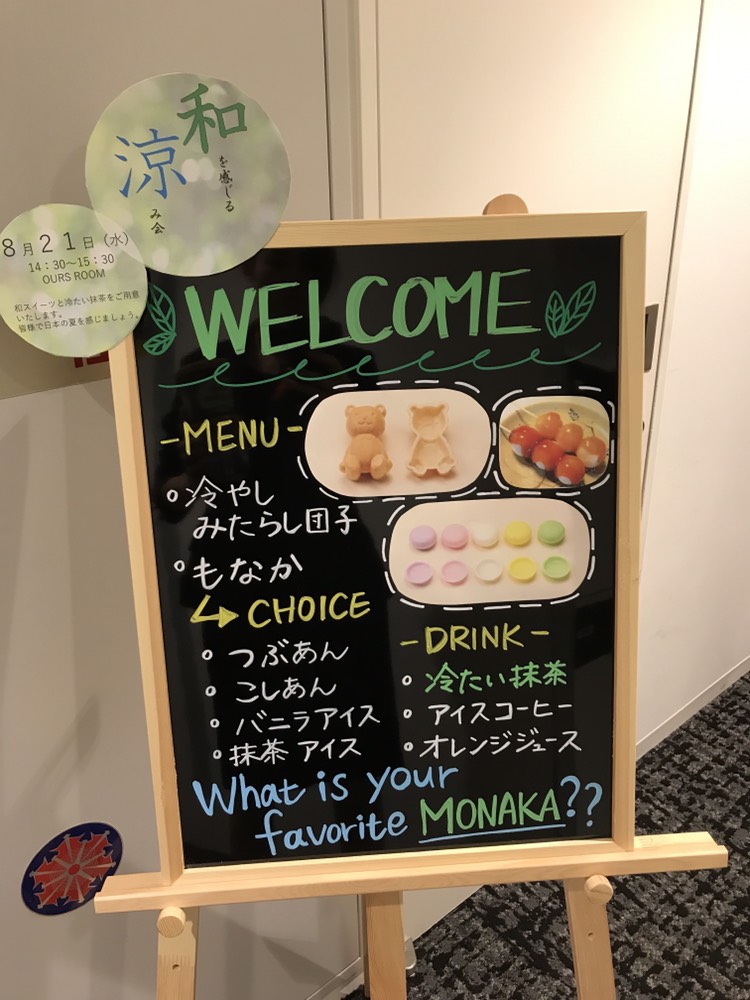 和
を感じる
涼
み会
8月21日（水）
14：30～15：30
OURS ROOM
和スイーツと冷たい抹茶をご用意
いたします。
皆様で日本の夏を感じましょう。
WELCOME
-MENU-
○冷やし
みたらし団子
○もなか
CHOICE
○つぶあん
○こしあん
○バニラアイス
○抹茶アイス
-DRINK-
○冷たい抹茶
○アイスコーヒー
○オレンジジュース
What is your
favorite MONAKA??